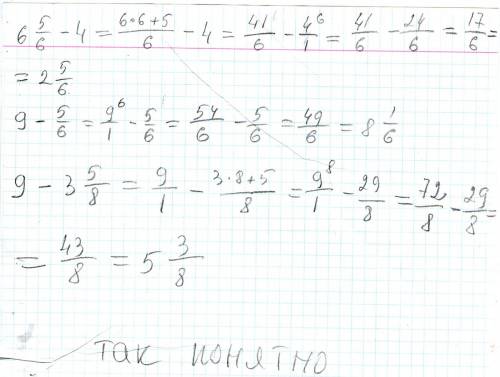 6 5/6 - 4 = (6·6+5)/6 - 4 = 41/6 - 4⁶/1 = 41/6 - 24/6 = 17/6 =
= 2 5/6
9 - 5/6 = 9⁶/1 - 5/6 = 54/6 - 5/6 = 49/6 = 8 1/6
9 - 3 5/8 = 9/1 - (3·8+5)/8 = 9⁸/1 - 29/8 = 72/8 - 29/8 =
= 43/8 = 5 3/8
так понятно